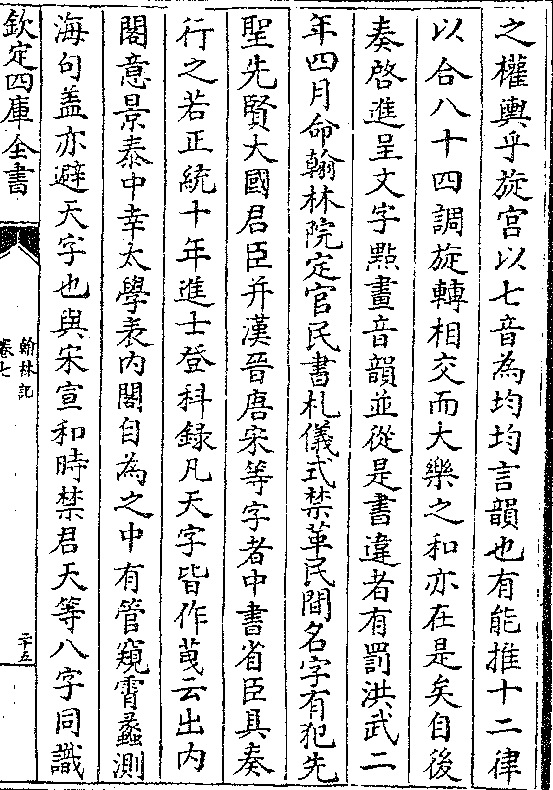 之權輿乎旋宫以七音為均均言韻也有能推十二律
以合八十四調旋轉相交而大樂之和亦在是矣自後
奏啓進呈文字點畫音韻並從是書違者有罰洪武二
年四月命翰林院定官民書札儀式禁革民間名字有犯先
聖先賢大國君臣并漢晉唐宋等字者中書省臣具奏
行之若正統十年進士登科録凡天字皆作𠀡云出内
閣意景泰中幸太學表内閣自為之中有管窺霄蠡測
海句盖亦避天字也與宋宣和時禁君天等八字同識
欽定四庫全書
翰林記
卷七
二十五